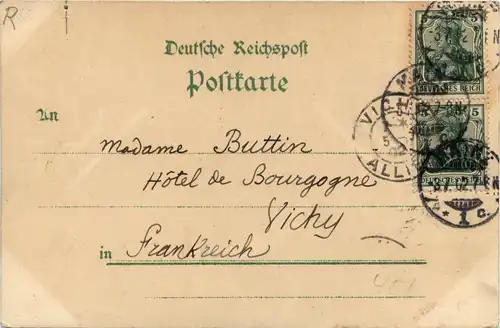 R
Deutsche Reichspost
Postkarte
An
Madame Buttin
Hôtel de Bourgogne
Vichy
in Frankreich
5 5
DEUTSCHES REICH
5
DEUTSCHES REICH
VIC
ALLI
* 1 c.